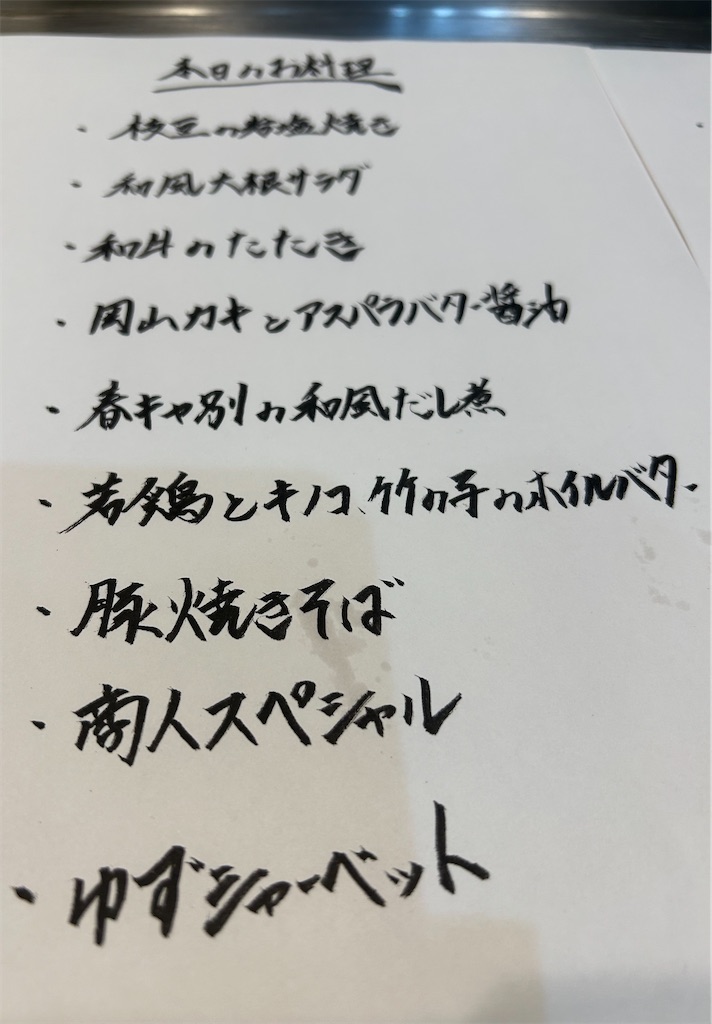 本日のお料理
・枝豆の岩塩焼き
・和風大根サラダ
・和牛のたたき
・岡山カキとアスパラバター醤油
・春キャ別の和風だし煮
・若鶏とキノコ、竹の子のホイルバター
・豚焼きそば
・商人スペシャル
・ゆずシャーベット